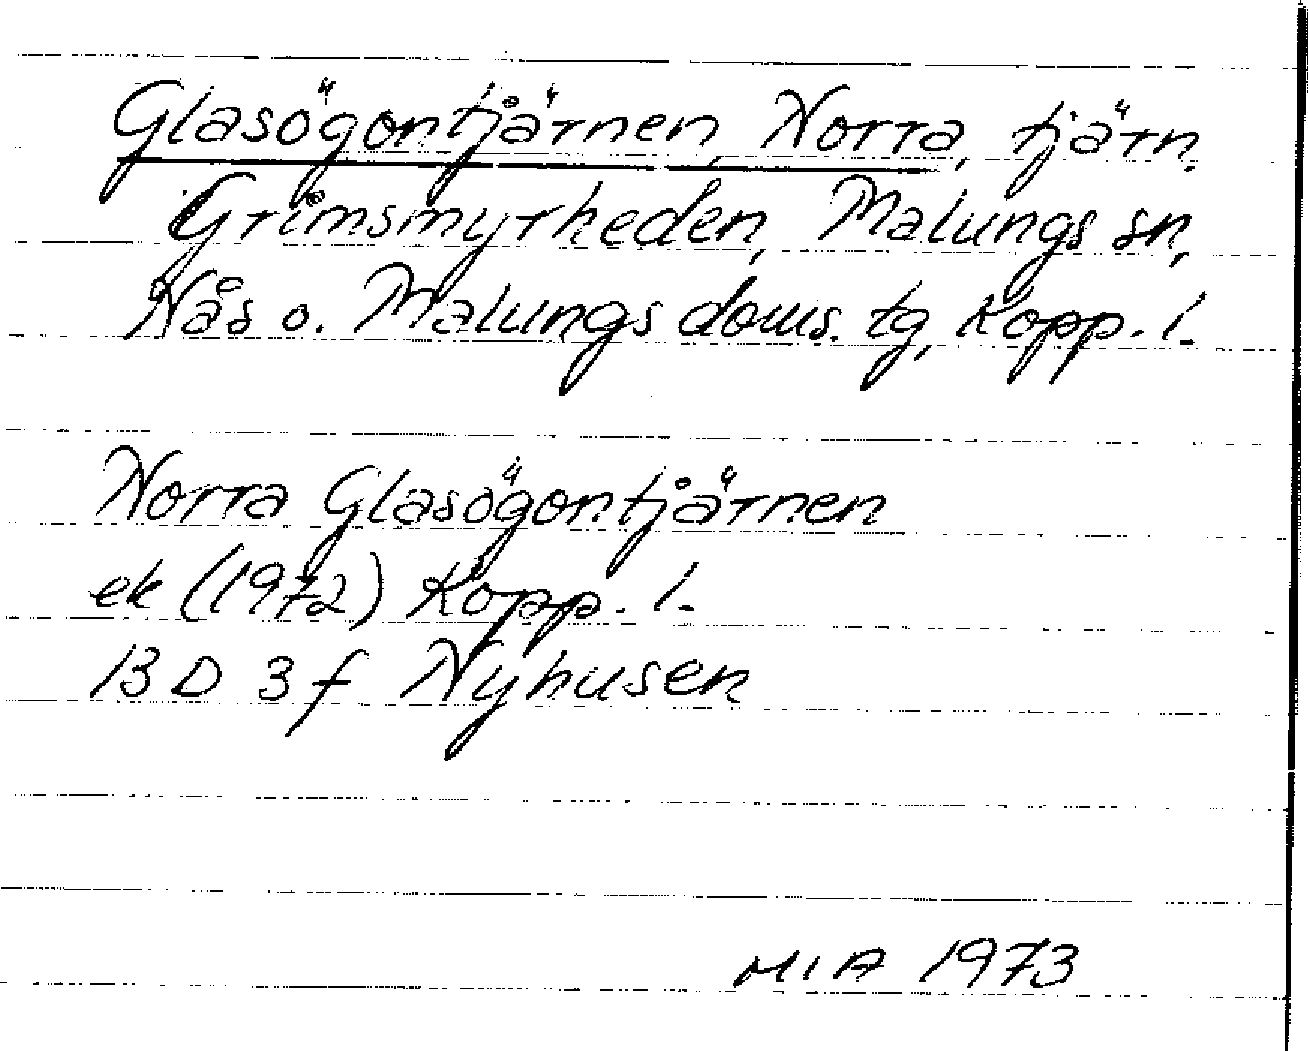 Glasögontjärnen, Norra, tjärn.
Grimsmyrheden, Malungs sn,
Nås o. Malungs doms. tg, Kopp. l.
Norra Glasögontjärnen
ek (1972) Kopp. l.
13 D 3 f Nyhusen
MIA 1973